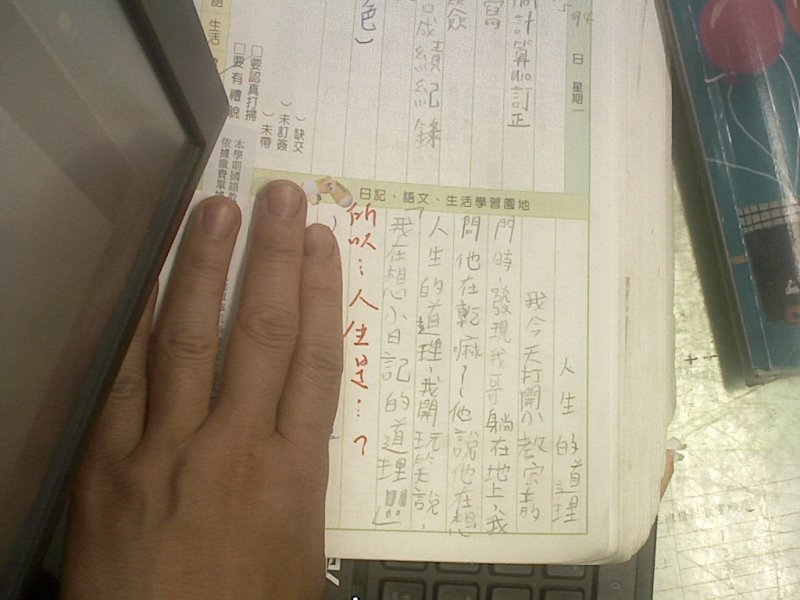 94
日 星期一
訂正
成績紀錄
色)
)缺交
)未訂簽
)未帶
□要認真打掃
□要有禮貌
生活
本學期國語
依據繳費單
日記、語文、生活學習園地
人生的道理
我今天打開小教室的
門時,發現我哥躺在地上,我
問他在乾嘛~他說他在想
「人生的道理,我開玩笑說:
我在想小日記的道理!!!」
所以…人生是…?